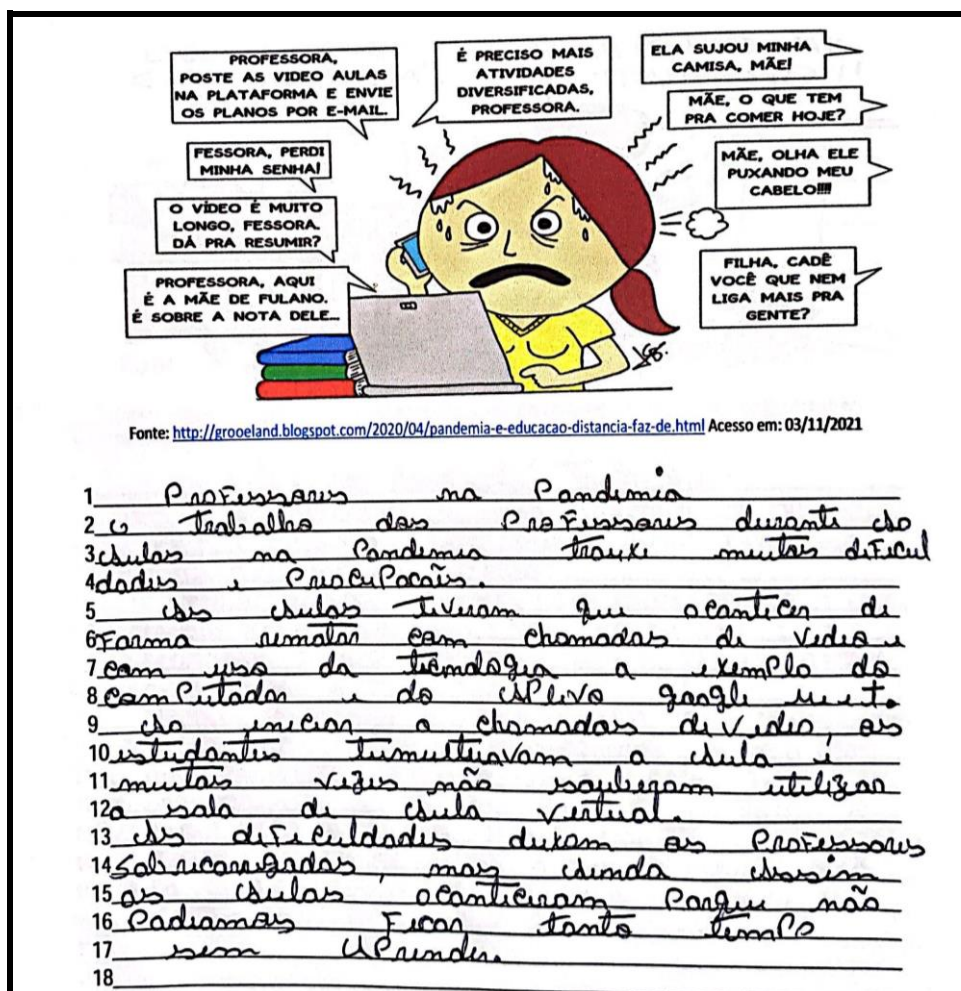 PROFESSORA,
POSTE AS VIDEO AULAS
NA PLATAFORMA E ENVIE
OS PLANOS POR E-MAIL.
É PRECISO MAIS
ATIVIDADES
DIVERSIFICADAS,
PROFESSORA.
ELA SUJOU MINHA
CAMISA, MÃE!
MÃE, O QUE TEM
PRA COMER HOJE?
FESSORA, PERDI
MINHA SENHA!
MÃE, OLHA ELE
PUXANDO MEU
CABELO!!!!
O VÍDEO É MUITO
LONGO, FESSORA.
DÁ PRA RESUMIR?
PROFESSORA, AQUI
É A MÃE DE FULANO.
É SOBRE A NOTA DELE...
FILHA, CADÊ
VOCÊ QUE NEM
LIGA MAIS PRA
GENTE?
Fonte: http://grooeland.blogspot.com/2020/04/pandemia-e-educacao-distancia-faz-de.html Acesso em: 03/11/2021
1 Professores na Pandemia
2 O trabalho dos Professores durante as
3 Aulas na Pandemia trouxe muitas dificul
4 dades e Preocupações.
5 As Aulas tiveram que acontecer de
6 Forma remotar com chamadas de vedeo e
7 com uso da tecnologia a exemplo do
8 computador e do google meet.
9 Ao iniciar a chamadas de vedeo, os
10 estudantes tumultuavam a Aula e
11 muitas vezes não souberam utilizar
12 a sala de Aula Vertual.
13 As dificuldades duxam os Professores
14 Sobricarregados, mas Ainda Assim
15 as Aulas aconticeram Porque não
16 Podiamos Ficar tanto tempo
17 sem APrender.
18